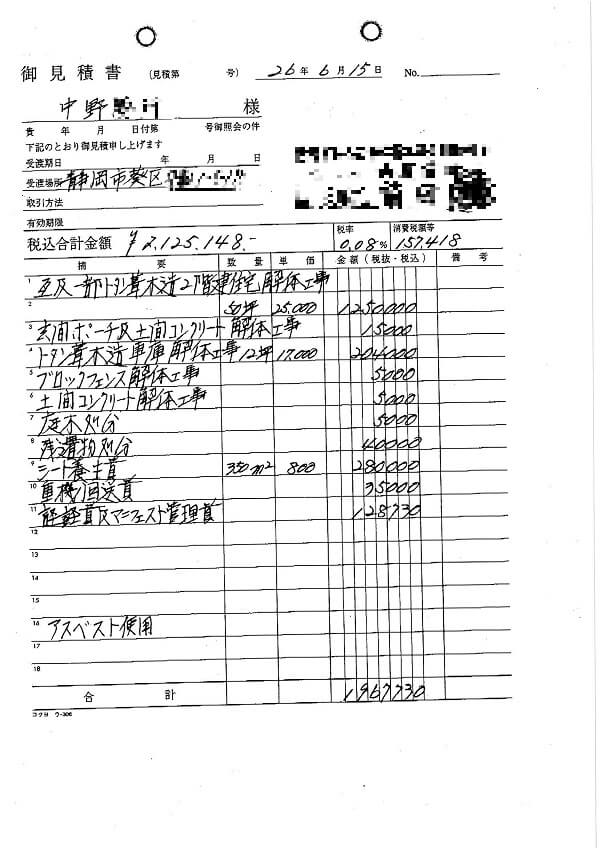 御見積書 (見積第 号) 26年6月15日 No.
中野 様
貴 年 月 日付第 号御照会の件
下記のとおり御見積申し上げます
受渡期日 年 月 日
受渡場所 静岡市葵区
取引方法
有効期限
税込合計金額 ¥2,125,148.- 税率 0.08% 消費税額等 157,418
摘要 数量 単価 金額(税抜・税込) 備考
1 瓦及一部トタン葺木造2階建住宅解体工事
2 50坪 25,000 1250000
3 玄関ポーチ及土間コンクリート解体工事 15000
4 トタン葺木造車庫解体工事 12坪 17,000 204000
5 ブロックフェンス解体工事 5000
6 土間コンクリート解体工事 5000
7 庭木処分 5000
8 残置物処分 40000
9 シート養生費 350m² 800 280000
10 重機回送費 35000
11 諸経費及マニフェスト管理費 128730
12
13
14
15
16 アスベスト使用
17
18
合計 1967730
コクヨ ウ-306